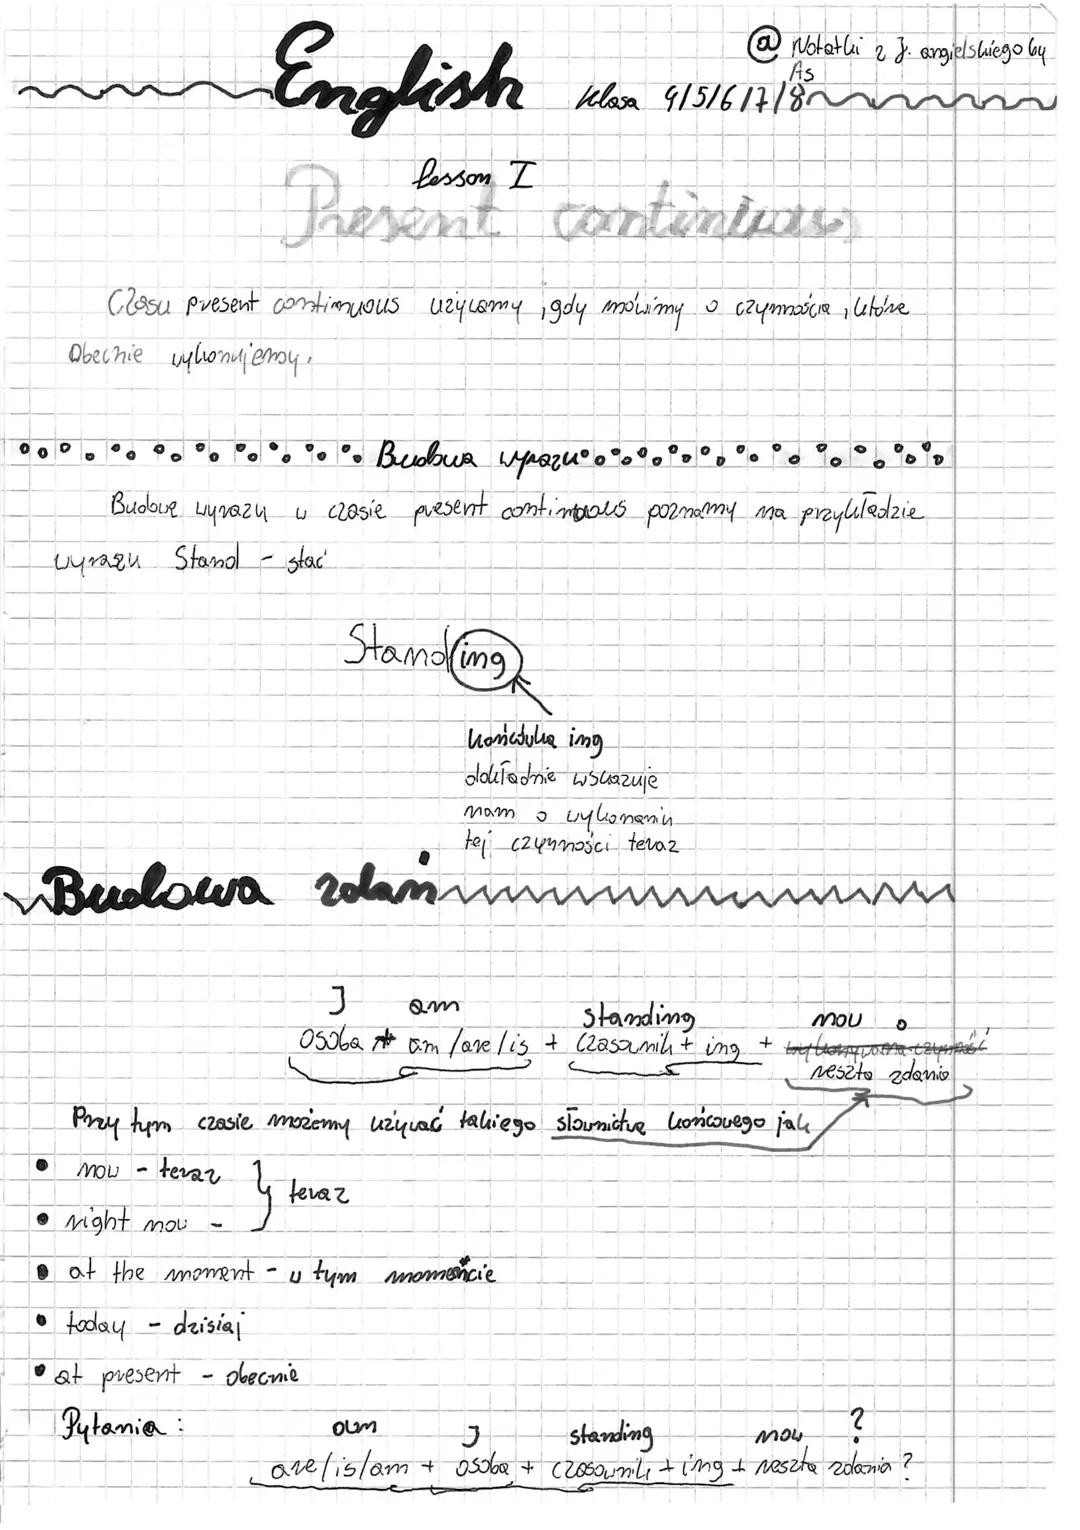 @ Notatki z J. angielskiego by
As
English klasa 4/5/6/7/8
lesson I
Present continuous
Czasu present continuous używamy, gdy mówimy o czynnościa, które
Obecnie wykonujemy.
Budowa wyrazu
Budowę wyrazu w czasie present continuous poznamy na przykładzie
wyrazu Stand - stać
Standing
końcówka ing
dokładnie wskazuje
nam o wykonaniu
tej czynności teraz
Budowa zdań
I am standing now.
osoba + am/are/is + czasownik + ing + wykonywana czynność
reszta zdania
Przy tym czasie możemy używać takiego słownictwa końcowego jak
• now - teraz
teraz
• right now -
• at the moment - w tym momencie
• today - dzisiaj
• at present - obecnie
Pytania: am I standing now ?
are/is/am + osoba + czasownik + ing + reszta zdania?